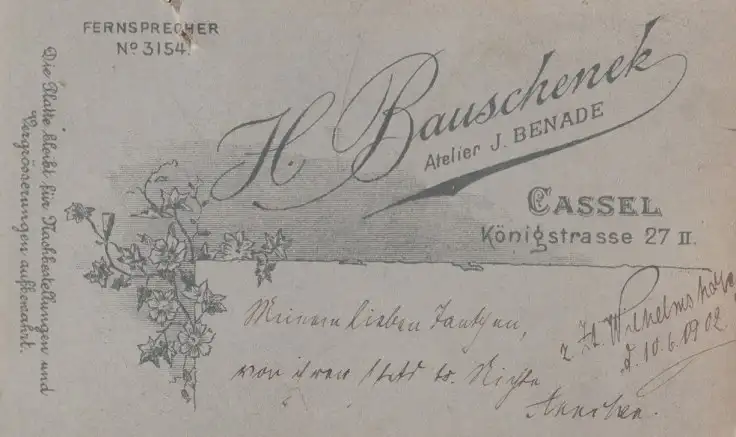 FERNSPRECHER
No 3154.
H. Bauschenek
Atelier J. BENADE
CASSEL
Königstrasse 27 II.
Die Platte bleibt für Nachbestellungen und
Vergrösserungen aufbewahrt.
Meinem lieben Tantchen,
von ihrer stets tr. Nichte
z. Zt. Wilhelmshöhe
d. 10.6.1902.